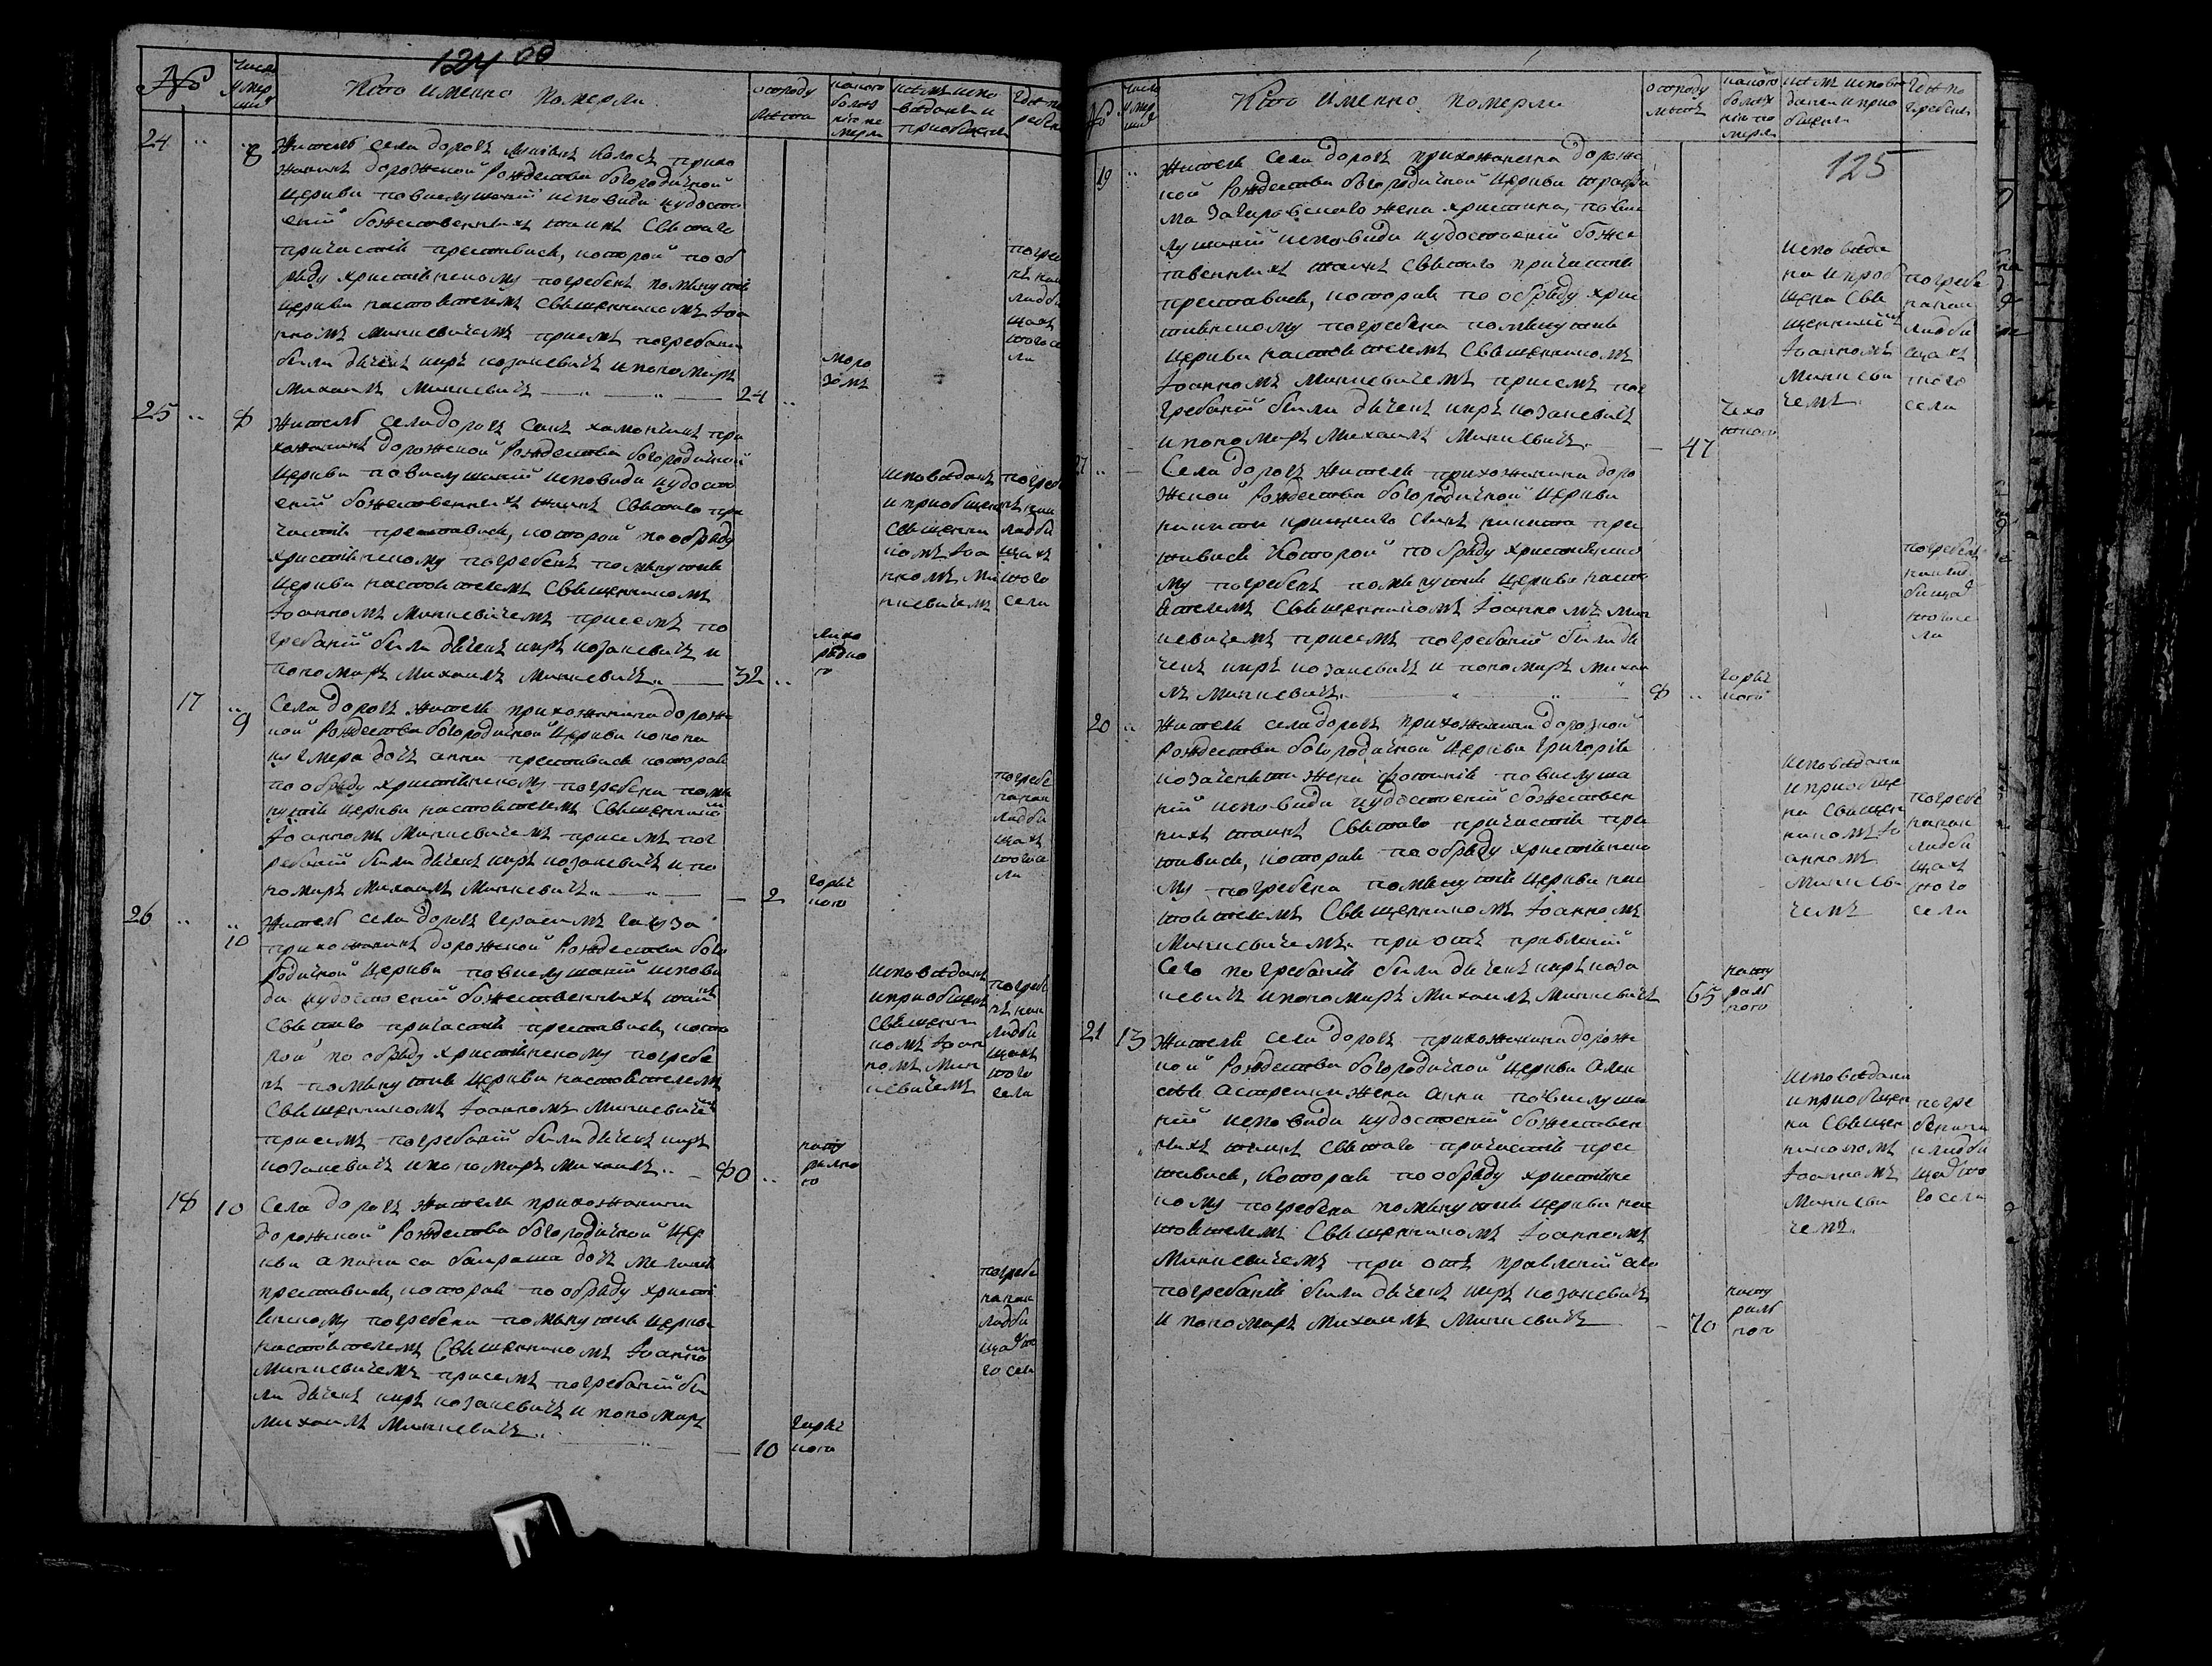 124 об
№
Число умер ших
Кто именно померли
отроду лѣта
какою болезнію померли
кѣмъ исповѣданы и приобщены
гдѣ погребены
24 8
Житель села дорогъ
прихожанинъ дорожской Рождества богородичной
церкви повыслушаніи исповѣди иудосто
еніи божественныхъ таинъ Святаго
причастія преставися, которой пооб
ряду христіянскому погребенъ помянутія
церкви настоятелемъ Священникомъ Іоа
нномъ Минкевичемъ присемъ погребаніи
были дячекъ киръ козакевичъ ипономарь
Михаилъ Минкевичъ 24
морозомъ
погребенъ на кладбищахъ того села
25 8
Житель села дорогъ при
хожанинъ дорожской Рождества богородичной
церкви повыслушаніи исповѣди иудосто
еніи божественныхъ таинъ Святаго при
частія преставися, которой пообряду
христіянскому погребенъ помянутія
церкви настоятелемъ Священникомъ
Іоанномъ Минкевичемъ присемъ по
гребаніи были дячекъ киръ козакевичъ и
пономарь Михаилъ Минкевичъ 32
исповѣданъ и приобщенъ Священникомъ Іоанномъ Минкевичемъ
погребенъ на кладбищахъ того села
17 9
Села дорогъ жителя прихожанина дорожс
кой Рождества богородичной церкви
дочь анна преставися которая
пообряду христіянскому погребена помя
нутія церкви настоятелемъ Священником
Іоанномъ Минкевичемъ присемъ пог
ребаніи были дячекъ киръ козакевичъ и по
номарь Михаилъ Минкевичъ 2
горячкою
погребена на кладбищахъ того села
26 10
Житель села дорогъ герасимъ
прихожанинъ дорожской Рождества бого
родичной церкви повыслушаніи исповѣ
ди иудостоеніи божественныхъ таинъ
Святаго причастія преставися, кото
рой пообряду христіянскому погребе
нъ помянутія церкви настоятелемъ
Священникомъ Іоанномъ Минкевичемъ
присемъ погребаніи были дячекъ киръ
козакевичъ ипономарь Михаилъ 80
натурально
исповѣданъ и приобщенъ Священникомъ Іоанномъ Минкевичемъ
погребенъ на кладбищахъ того села
18 10
Села дорогъ жителя прихожанина
дорожской Рождества богородичной Цер
кви дочь
преставися, которая пообряду христі
янскому погребена помянутія церкви
настоятелемъ Священникомъ Іоанном
Минкевичемъ присемъ погребаніи бы
ли дячекъ киръ козакевичъ и пономарь
Михаилъ Минкевичъ 10
горячкою
погребена на кладбищах того села
№
Число умер ших
Кто именно померли
отроду лѣтъ
какою болезнію померли
кѣмъ исповѣданы и приобщены
гдѣ погребены
125
19
Жителя села дорогъ прихожанина дорожс
кой Рождества богородичной церкви
жена христина, повыс
лушаніи исповѣди иудостоеніи боже
ственныхъ таинъ Святаго причастія
преставися, которая по обряду хрис
тіянскому погребена помянутія
церкви настоятелемъ Священникомъ
Іоанномъ Минкевичемъ присемъ пог
гребаніи были дячекъ киръ козакевичъ
ипономарь Михаилъ Минкевичъ 47
чехоткою
исповѣдана и приобщена Священником Іоанномъ Минкевичемъ
погребена на кладбищахъ того села
27
Села дорогъ жителя прихожанина доро
жской Рождества богородичной церкви
никиты сынъ никита прес
тавися которой пообряду христіянско
му погребенъ помянутія церкви насто
ятелемъ Священникомъ Іоанномъ Мин
кевичемъ присемъ погребаніи были дя
чекъ киръ козакевичъ и пономарь Михаи
лъ Минкевичъ 8
горячкою
погребенъ на кладбищах того села
20
Жителя села дорогъ прихожанина дорожкой
Рождества богородичной церкви григорія
жена фотинія повыслуша
ніи исповѣди иудостоеніи божествен
ныхъ таинъ Святаго причастія прес
тавися, которая пообряду христіянско
му погребена помянутія церкви нас
тоятелемъ Священникомъ Іоанномъ
Минкевичемъ при отъ правленіи
сего погребанія были дячекъ киръ коза
кевичъ ипономарь Михаилъ Минкевичъ 65
натуральною
исповѣдана и приобщена Священникомъ Іоанномъ Минкевичемъ
погребена на кладбищахъ того села
21 13
Жителя села дорогъ прихожанина дорожс
кой Рождества богородичной церкви алек
сѣя жена анна повыслуша
ніи исповѣди иудостоеніи божествен
ныхъ таинъ Святаго причастія прес
тавися, которая пообряду христіянс
кому погребена помянутія церкви нас
тоятелемъ Священникомъ Іоанномъ
Минкевичемъ при отъ правленіи сего
погребанія были дячекъ киръ козакевичъ
и пономарь Михаилъ Минкевичъ 70
натуральною
исповѣдана и приобщена Священникомъ Іоанномъ Минкевичемъ
погребена на кладбищах того села